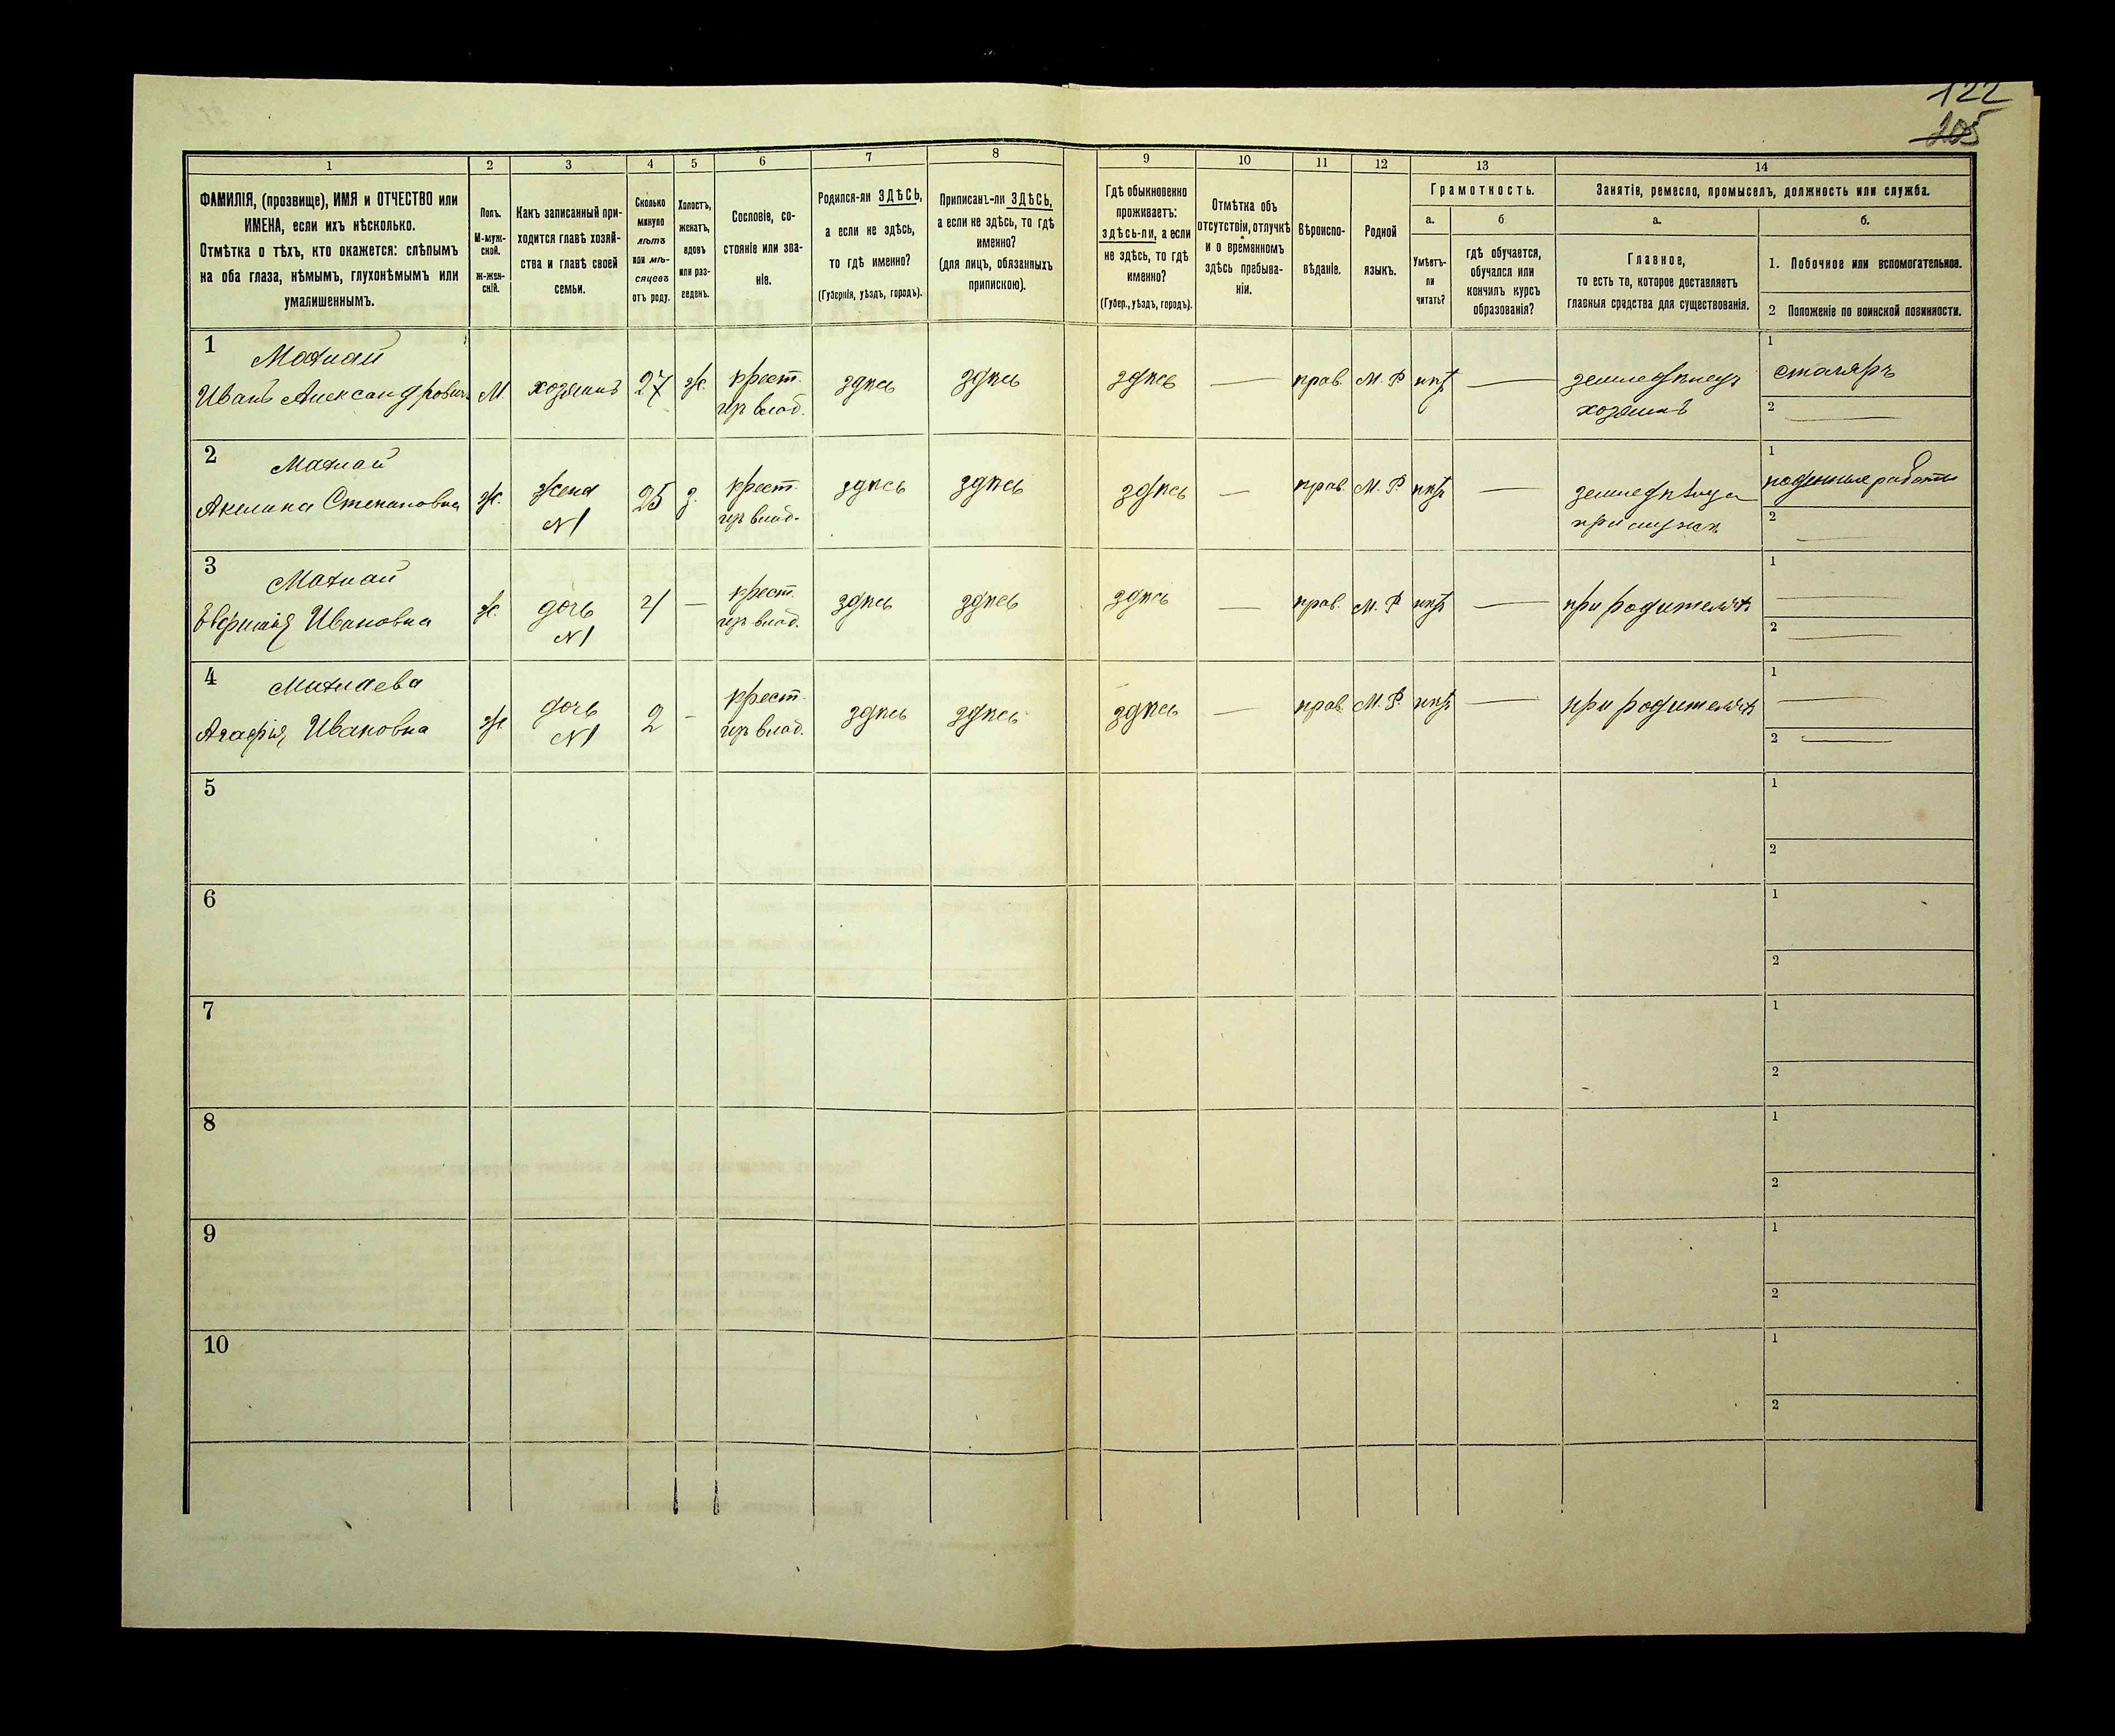 122
105
1
2
3
4
5
6
7
8
9
10
11
12
13
14
ФАМИЛІЯ, (прозвище), ИМЯ и ОТЧЕСТВО или
ИМЕНА, если ихъ нѣсколько.
Отмѣтка о тѣхъ, кто окажется: слѣпымъ
на оба глаза, нѣмымъ, глухонѣмымъ или
умалишеннымъ.
Полъ.
М-муж-
ской.
ж-жен-
скій.
Какъ записанный при-
ходится главѣ хозяй-
ства и главѣ своей
семьи.
Сколько
минуло
лѣтъ
или мѣ-
сяцевъ
отъ роду.
Холостъ,
женатъ,
вдовъ
или раз-
веденъ.
Сословіе, со-
стояніе или зва-
ніе.
Родился-ли ЗДѢСЬ,
а если не здѣсь,
то гдѣ именно?
(Губернія, уѣздъ, городъ).
Приписанъ-ли ЗДѢСЬ,
а если не здѣсь, то гдѣ
именно?
(для лицъ, обязанныхъ
припискою).
Гдѣ обыкновенно
проживаетъ:
здѣсь-ли, а если
не здѣсь, то гдѣ
именно?
(Губер., уѣздъ, городъ).
Отмѣтка объ
отсутствіи, отлучкѣ
и о временномъ
здѣсь пребыва-
ніи.
Вѣроиспо-
вѣданіе.
Родной
языкъ.
Грамотность.
а.
б
Умѣетъ-
ли
читать?
гдѣ обучается,
обучался или
кончилъ курсъ
образованія?
Занятіе, ремесло, промыселъ, должность или служба.
а.
б.
Главное,
то есть то, которое доставляетъ
главныя средства для существованія.
1. Побочное или вспомогательное.
2 Положеніе по воинской повинности.
1
Иванъ Александровичъ
М.
хозяинъ
27
ж.
крест.
влад.
здѣсь
здѣсь
здѣсь
—
прав.
М. Р
нѣтъ
—
земледѣлецъ
хозяинъ
1
столяръ
2
—
2
Акилина Степановна
ж.
жена
N1
25
з.
крест.
влад.
здѣсь
здѣсь
здѣсь
—
прав.
М. Р
нѣтъ
—
при мужѣ
1
поденные работы
2
—
3
Ивановна
ж.
дочь
N1
4
—
крест.
влад.
здѣсь
здѣсь
здѣсь
—
прав.
М. Р
нѣтъ
—
при родителяхъ
1
—
2
—
4
Агафія Ивановна
ж.
дочь
N1
2
—
крест.
влад.
здѣсь
здѣсь
здѣсь
—
прав.
М. Р.
нѣтъ
—
при родителяхъ
1
—
2
—
5
1
2
6
1
2
7
1
2
8
1
2
9
1
2
10
1
2